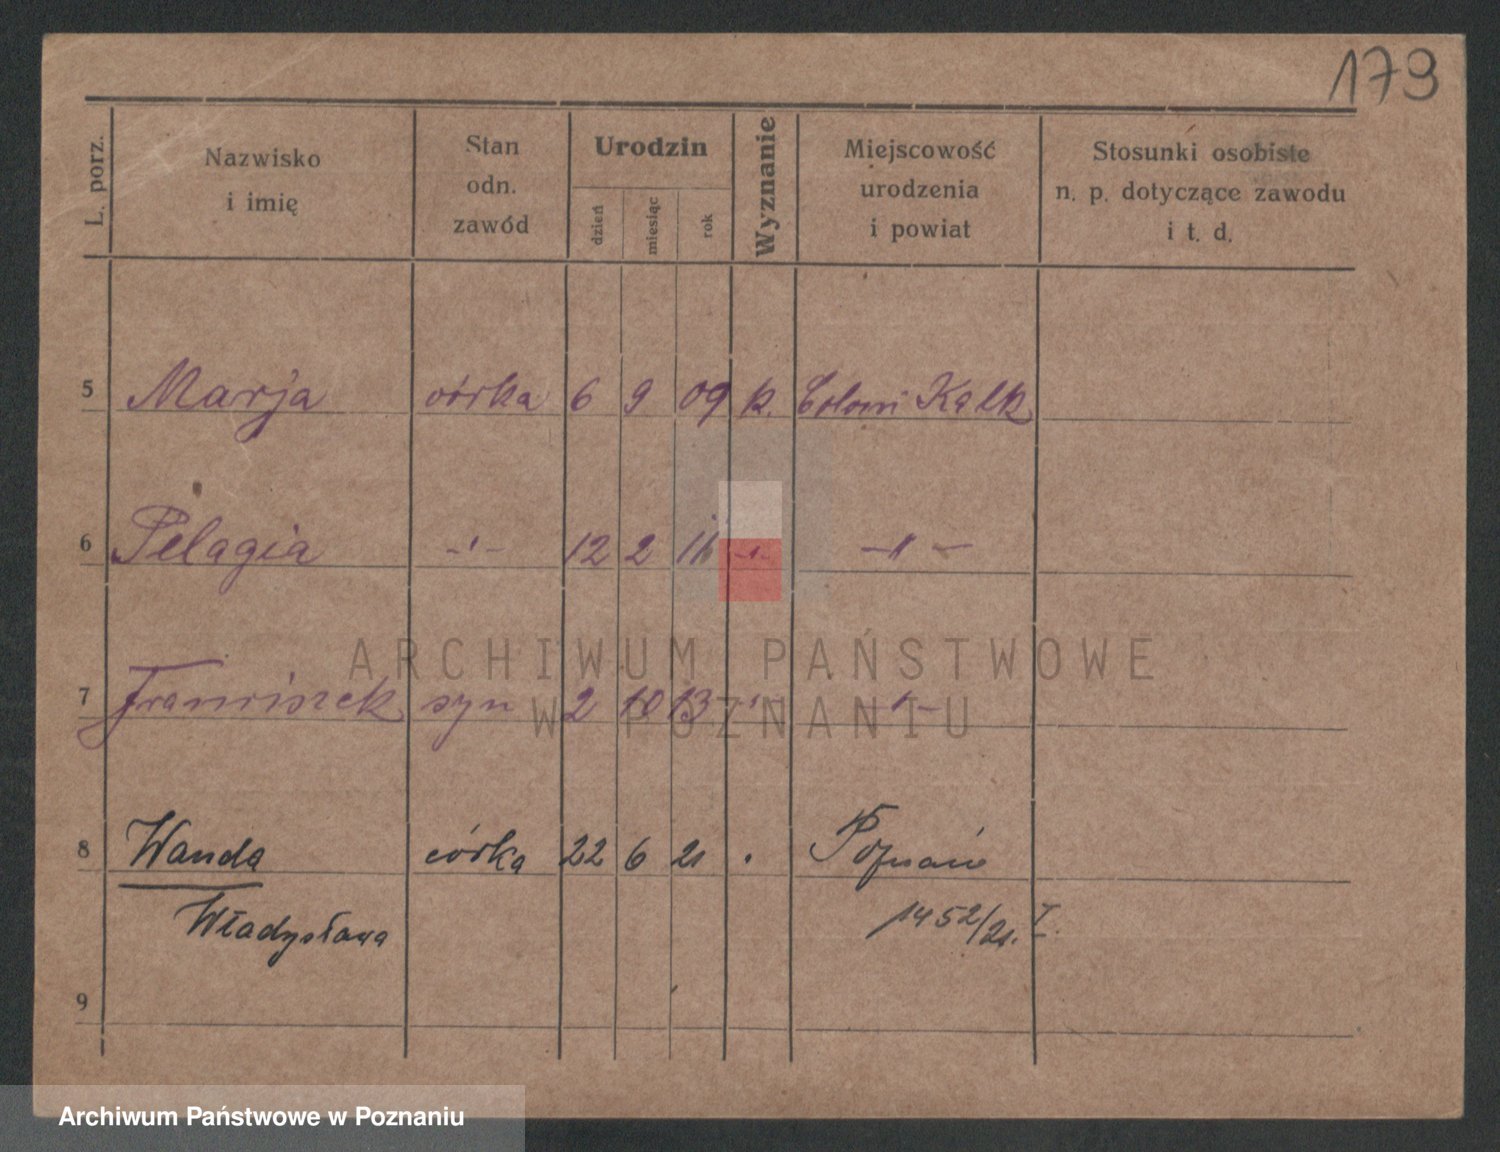 179
L. porz.
Nazwisko
i imię
Stan
odn.
zawód
Urodzin
dzień
miesiąc
rok
Wyznanie
Miejscowość
urodzenia
i powiat
Stosunki osobiste
n. p. dotyczące zawodu
i t. d.
5 Marja córka 6 9 09 k. Kalk
6 Pelagia -"- 12 2 -"- -"-
7 Franciszek syn 2 10 13 -"- -"-
8 Wanda córka 22 6 21 Poznań
Władysława 1452/21. I.
9
ARCHIWUM PAŃSTWOWE
W POZNANIU
Archiwum Państwowe w Poznaniu